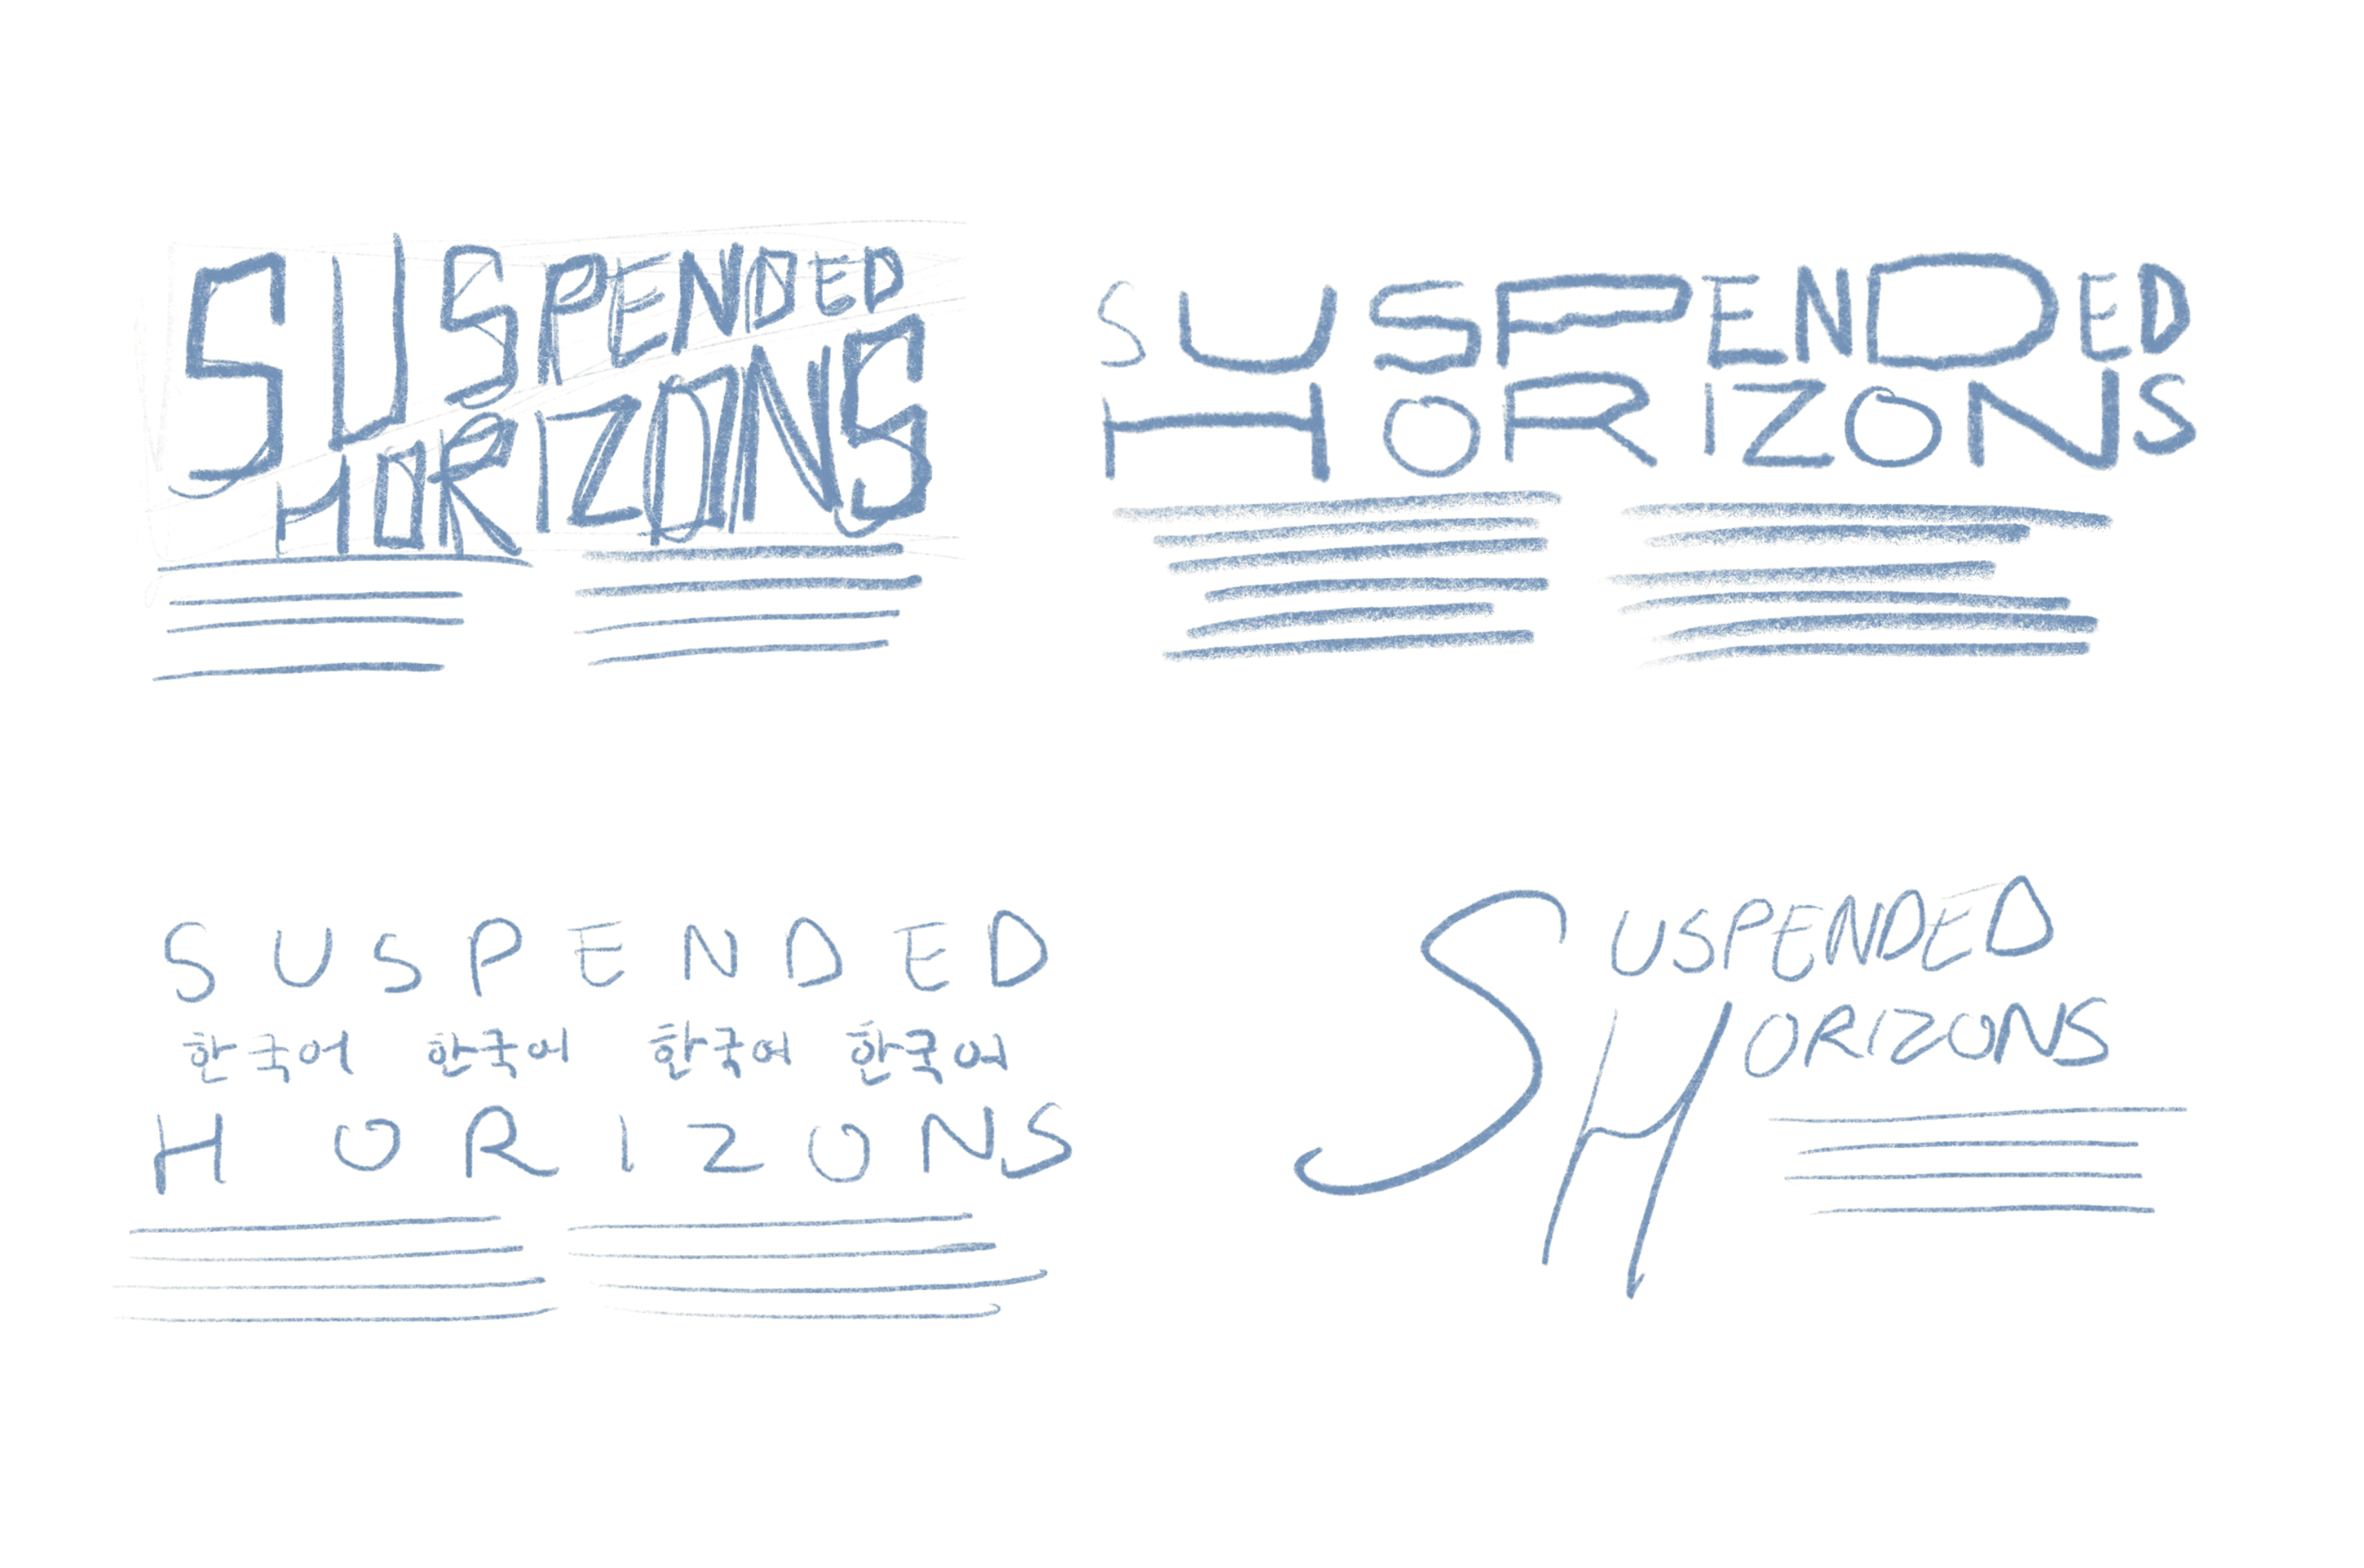 SUSPENDED
HORIZONS
SUSPENDED
HORIZONS
SUSPENDED
한국어 한국어 한국어 한국어
HORIZONS
SUSPENDED
HORIZONS